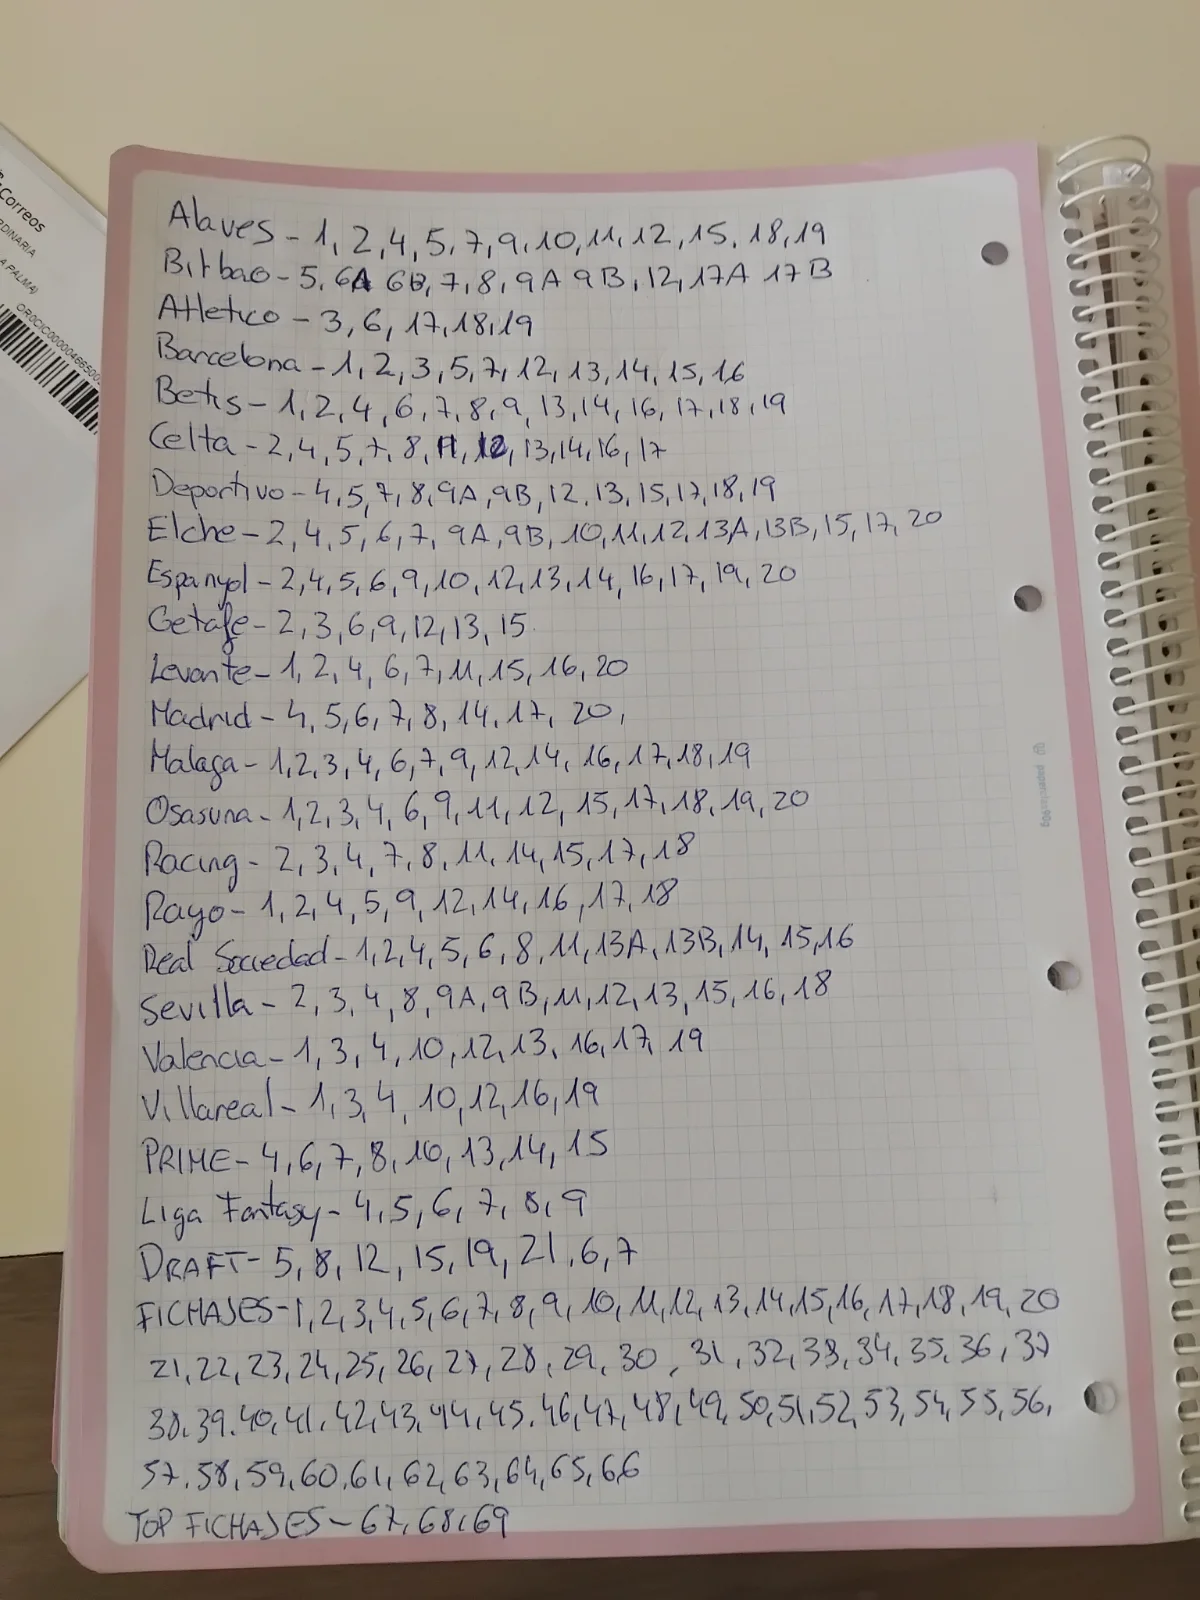 Correos
ORDINARIA
A PALMA)
Alaves - 1, 2, 4, 5, 7, 9, 10, 11, 12, 15. 18, 19
Bilbao - 5, 6A 6B, 7, 8, 9A 9B, 12, 17A 17B
Atletico - 3, 6, 17, 18, 19
Barcelona - 1, 2, 3, 5, 7, 12, 13, 14, 15, 16
Betis - 1, 2, 4, 6, 7, 8, 9, 13, 14, 16, 17, 18, 19
Celta - 2, 4, 5, 7, 8, 11, 12, 13, 14, 16, 17
Deportivo - 4, 5, 7, 8, 9A, 9B, 12. 13, 15, 17, 18, 19
Elche - 2, 4, 5, 6, 7, 9A, 9B, 10, 11, 12, 13A, 13B, 15, 17, 20
Espanyol - 2, 4, 5, 6, 9, 10, 12, 13, 14, 16, 17, 19, 20
Getafe - 2, 3, 6, 9, 12, 13, 15
Levante - 1, 2, 4, 6, 7, 11, 15, 16, 20
Madrid - 4, 5, 6, 7, 8, 14, 17, 20,
Malaga - 1, 2, 3, 4, 6, 7, 9, 12, 14, 16, 17, 18, 19
Osasuna - 1, 2, 3, 4, 6, 9, 11, 12, 15, 17, 18, 19, 20
Racing - 2, 3, 4, 7, 8, 11, 14, 15, 17, 18
Rayo - 1, 2, 4, 5, 9, 12, 14, 16, 17, 18
Real Sociedad - 1, 2, 4, 5, 6, 8, 11, 13A, 13B, 14, 15, 16
Sevilla - 2, 3, 4, 8, 9A, 9B, 11, 12, 13, 15, 16, 18
Valencia - 1, 3, 4, 10, 12, 13, 16, 17, 19
Villareal - 1, 3, 4, 10, 12, 16, 19
PRIME - 4, 6, 7, 8, 10, 13, 14, 15
Liga Fantasy - 4, 5, 6, 7, 8, 9
DRAFT - 5, 8, 12, 15, 19, 21, 6, 7
FICHAJES - 1, 2, 3, 4, 5, 6, 7, 8, 9, 10, 11, 12, 13, 14, 15, 16, 17, 18, 19, 20
21, 22, 23, 24, 25, 26, 27, 28, 29, 30, 31, 32, 33, 34, 35, 36, 37
38, 39. 40, 41. 42, 43, 44, 45. 46, 47, 48, 49, 50, 51, 52, 53, 54, 55, 56,
57. 58, 59, 60, 61, 62, 63, 64, 65, 66
TOP FICHAJES - 67, 68, 69